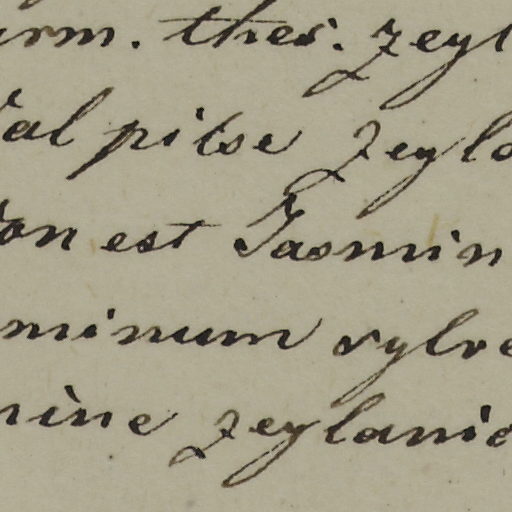 urm. thes. zeyl
Wal pitse zeyla
Non est Jasmin
minum sylve
nine zeylanic